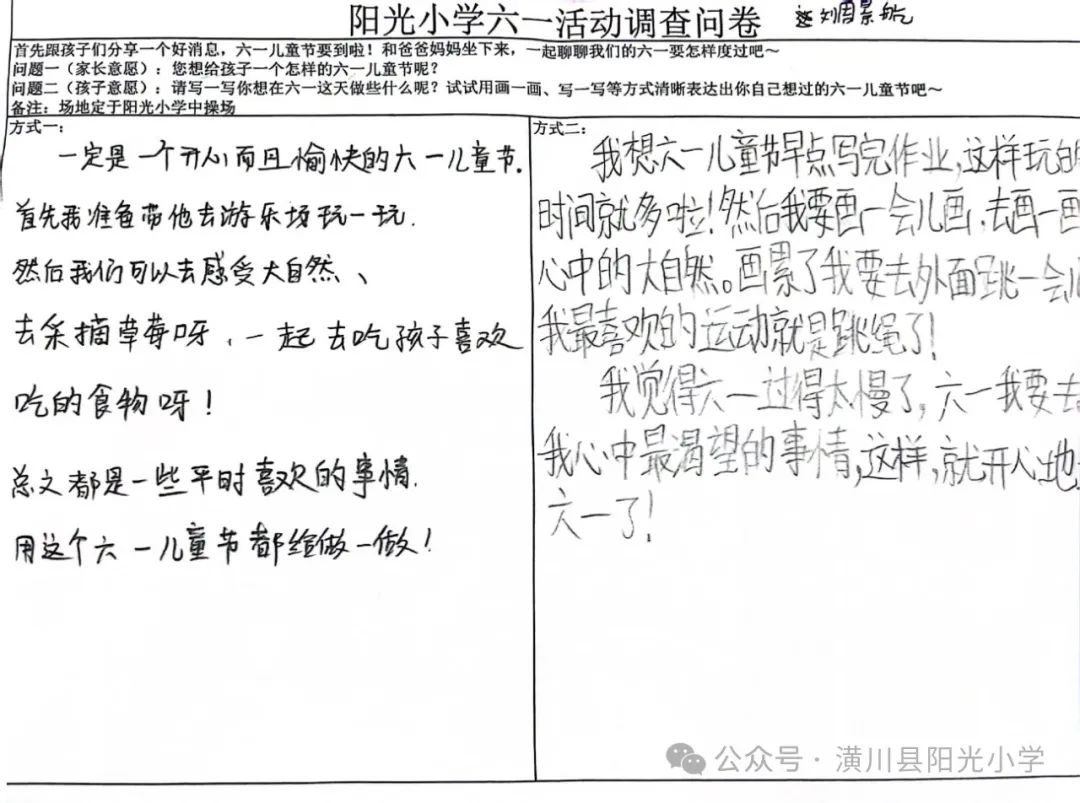 阳光小学六一活动调查问卷 刘周景航
首先跟孩子们分享一个好消息，六一儿童节要到啦！和爸爸妈妈坐下来，一起聊聊我们的六一要怎样度过吧～
问题一（家长意愿）：您想给孩子一个怎样的六一儿童节呢？
问题二（孩子意愿）：请写一写你想在六一这天做些什么呢？试试用画一画、写一写等方式清晰表达出你自己想过的六一儿童节吧～
备注：场地定于阳光小学中操场
方式一：
一定是一个开心而且愉快的六一儿童节.
首先我准备带他去游乐场玩一玩.
然后我们可以去感受大自然、
去采摘草莓呀、一起去吃孩子喜欢
吃的食物呀！
总文都是一些平时喜欢的事情.
用这个六一儿童节都给做一做！
方式二：
我想六一儿童节早点写完作业,这样玩的
时间就多啦!然后我要画一会儿画,去画一画
心中的大自然。画累了我要去外面跳一会儿
我最喜欢的运动就是跳绳了!
我觉得六一过得太慢了,六一我要去
我心中最渴望的事情,这样,就开心地
六一了!
公众号·潢川县阳光小学